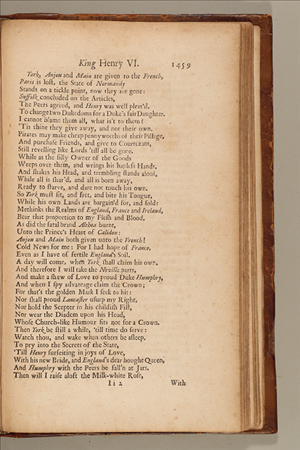 King Henry VI. 1459
York, Anjou and Main are given to the French,
Paris is lost, the State of Normandy
Stands on a tickle point, now they are gone:
Suffolk concluded on the Articles,
The Peers agreed, and Henry was well pleas'd,
To change two Dukedoms for a Duke's fair Daughter.
I cannot blame them all, what is't to them?
'Tis thine they give away, and not their own.
Pirates may make cheap pennyworths of their Pillage,
And purchase Friends, and give to Courtezans,
Still revelling like Lords 'till all be gone,
While as the silly Owner of the Goods
Weeps over them, and wrings his hapless Hands,
And shakes his Head, and trembling stands aloof,
While all is shar'd, and all is born away,
Ready to starve, and dare not touch his own.
So York must sit, and fret, and bite his Tongue,
While his own Lands are bargain'd for, and sold:
Methinks the Realms of England, France and Ireland,
Bear that proportion to my Flesh and Blood,
As did the fatal brand Althea burnt,
Unto the Prince's Heart of Calidon:
Anjou and Main both given unto the French!
Cold News for me: For I had hope of France,
Even as I have of fertile England's Soil.
A day will come, when York shall claim his own,
And therefore I will take the Nevills parts,
And make a shew of Love to proud Duke Humphry,
And when I spy advantage claim the Crown;
For that's the golden Mark I seek to hit:
Nor shall proud Lancaster usurp my Right,
Nor hold the Scepter in his childish Fist,
Nor wear the Diadem upon his Head,
Whose Church-like Humour fits not for a Crown.
Then York be still a while, 'till time do serve:
Watch thou, and wake when others be asleep,
To pry into the Secrets of the State,
'Till Henry surfeiting in joys of Love,
With his new Bride, and England's dear bought Queen,
And Humphry with the Peers be fall'n at Jars.
Then will I raise aloft the Milk-white Rose,
I i 2 With